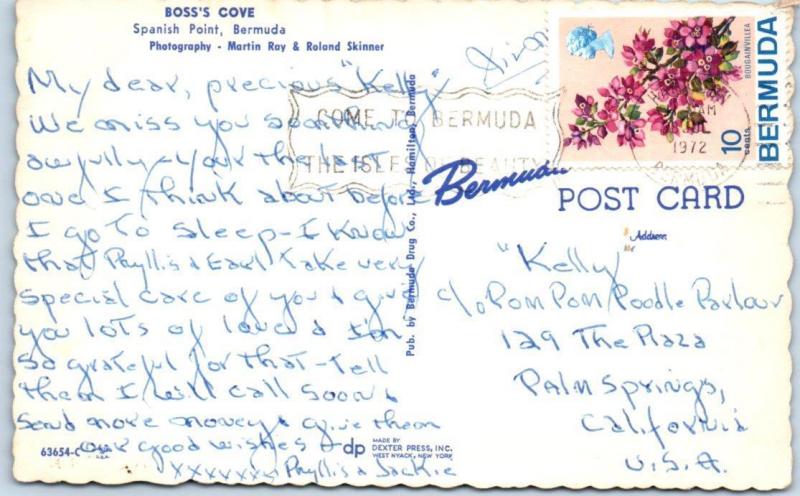 BOSS'S COVE
Spanish Point, Bermuda
Photography - Martin Ray & Roland Skinner
My dear, precious "Kelly"
We miss you so
awfully - your the last
one I think about before
I go to sleep - I know
that Phyllis & Earl take very
special care of you & give
you lots of love & I'm
so grateful for that - tell
them I will call soon &
send more money & give them
our good wishes &
xxxxxxx Phyllis & Jackie
63654-C
dp
MADE BY
DEXTER PRESS, INC.
WEST NYACK, NEW YORK
Pub. by Bermuda Drug Co., Ltd., Hamilton, Bermuda
COME TO BERMUDA
THE ISLES OF BEAUTY
AM
1972
BERMUDA
BOUGAINVILLEA
10 cents
BERMUDA
Bermuda
POST CARD
Address
"Kelly"
c/o Pom Pom Poodle Parlour
129 The Plaza
Palm Springs,
California
U.S.A.